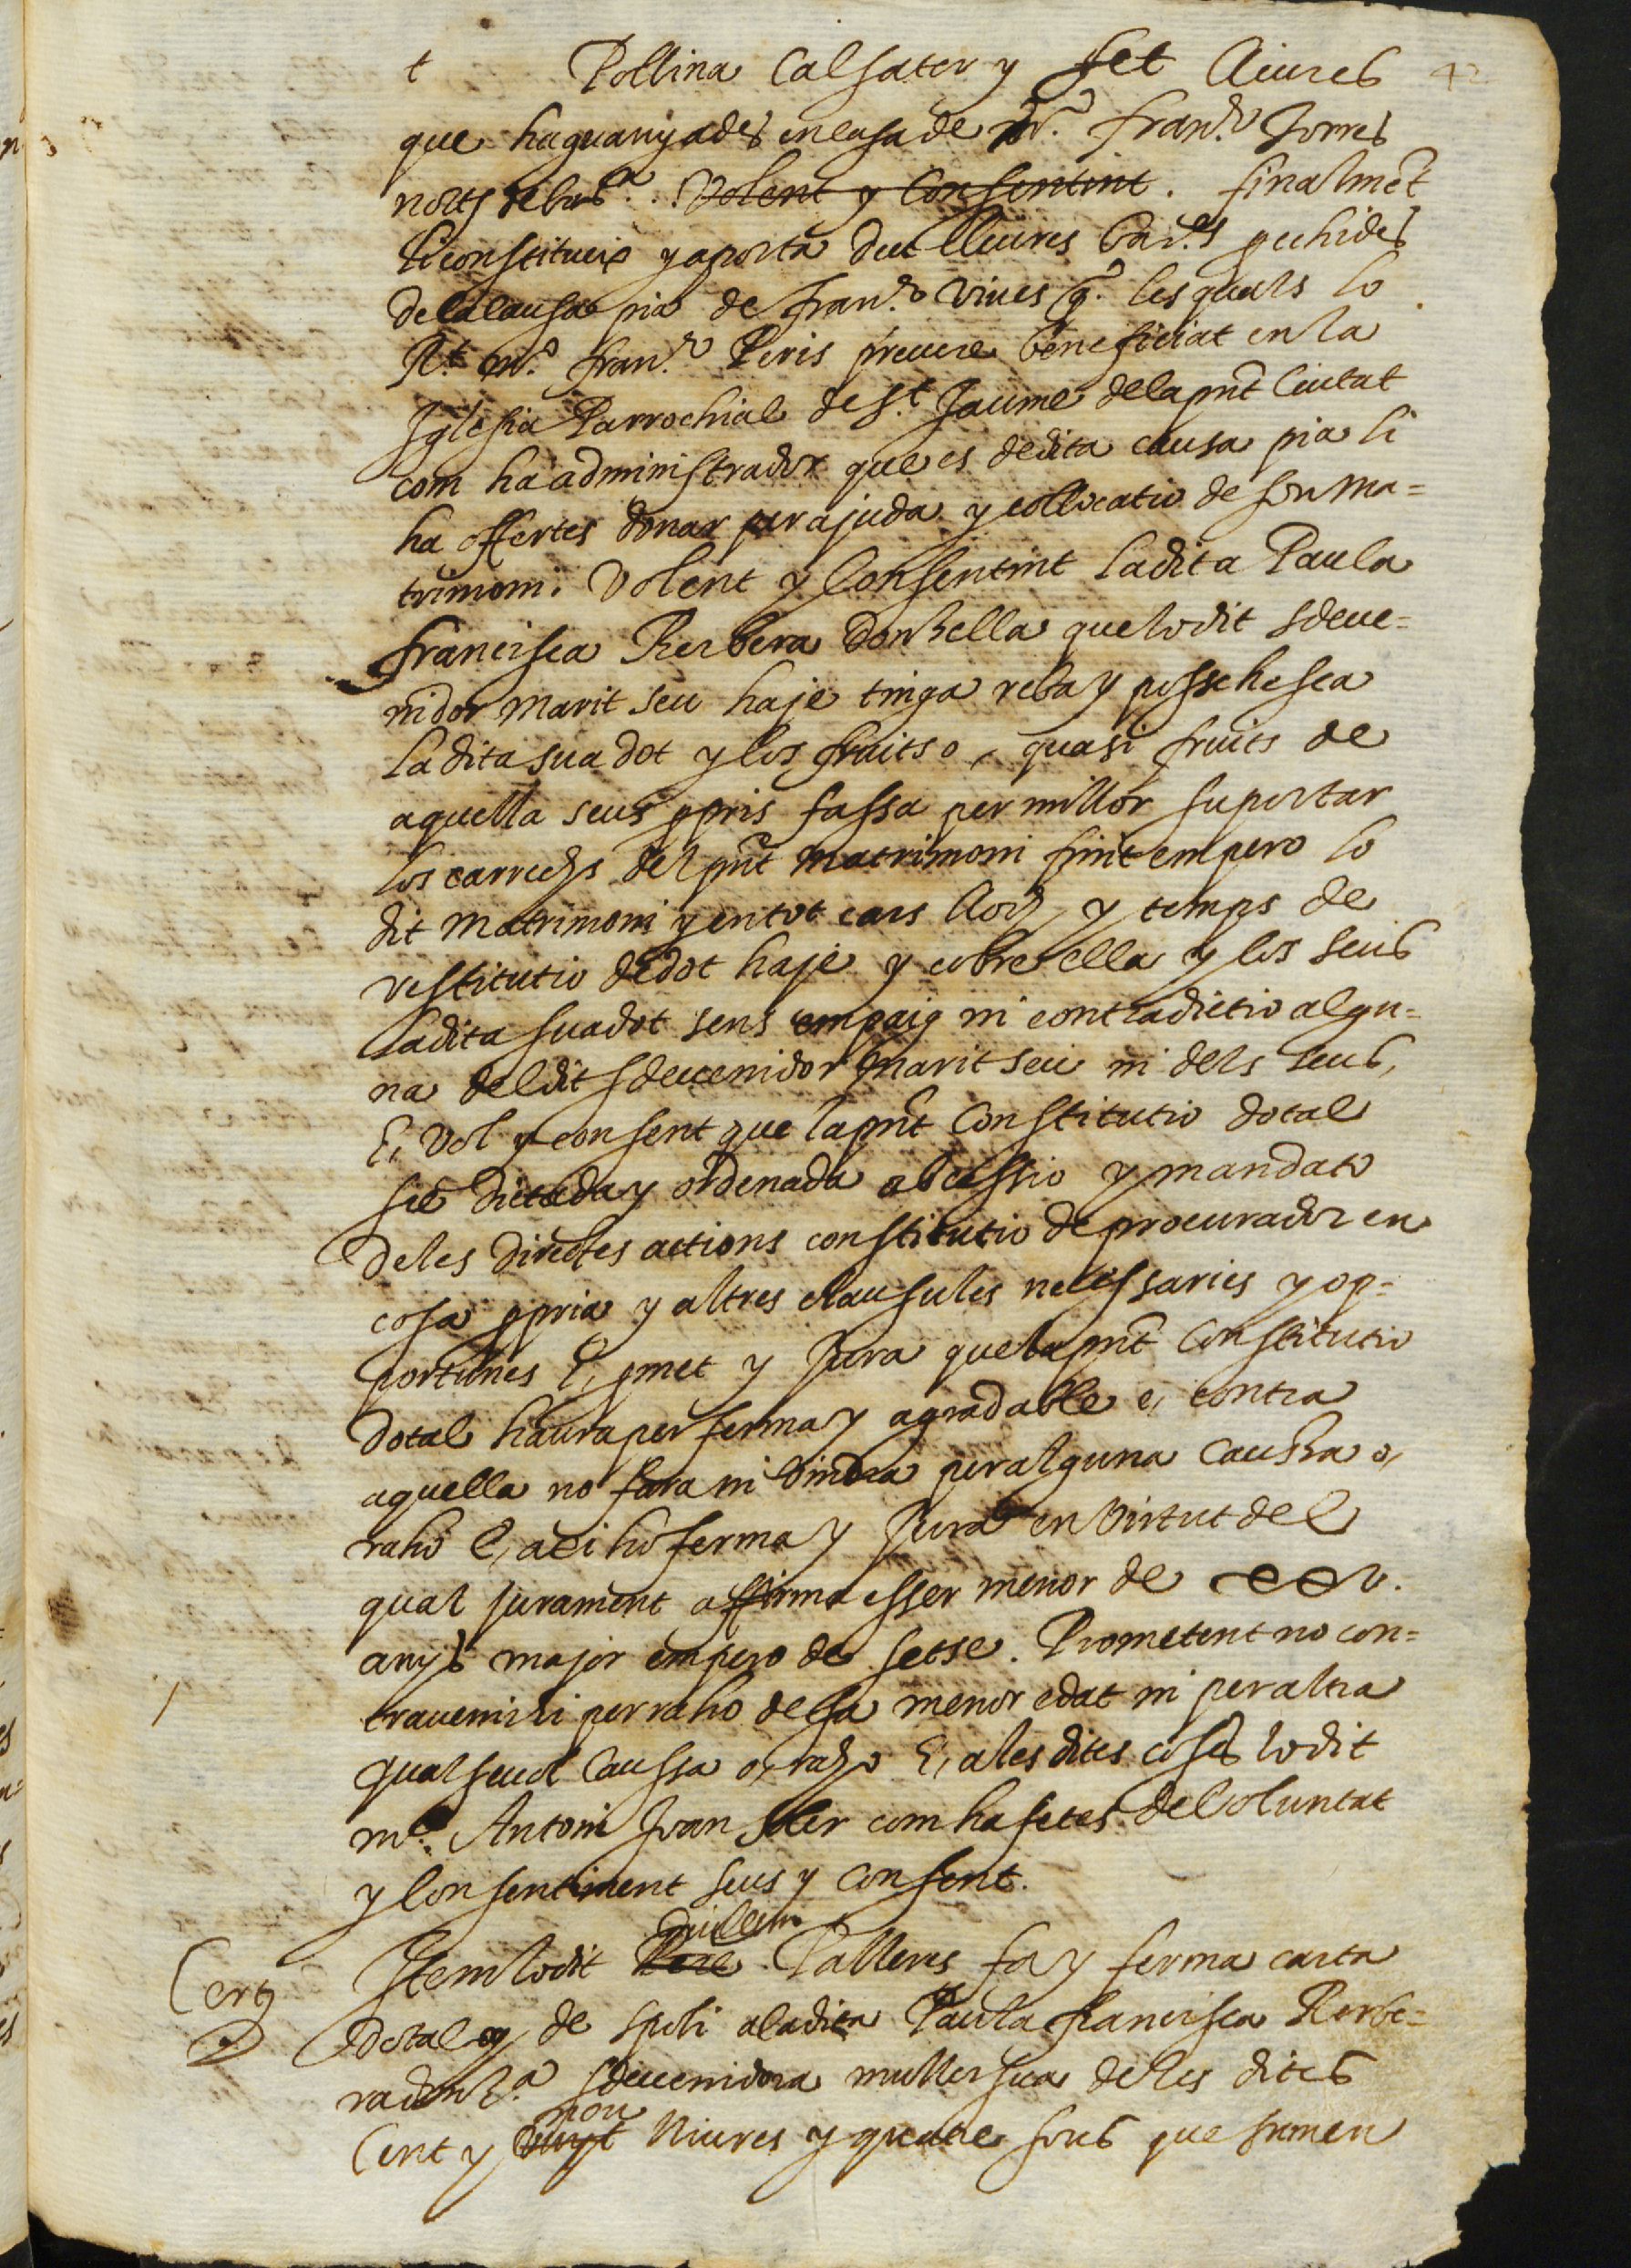 t Pollina Calsater y set lliures 42
que ha guanyades en casa de mr. fran.co Torres
not.s de bar.a . Volent y Consentint. finalmẽt
li constitueix y aporta deu lliures bar.s pcehides
de la causa pia de fran.co Vives q.o les quals lo
R.t m.o fran.co Peris prevere beneficiat en la
Iglesia Parrochial de S.t Jaume de la pñt Ciutat
com ha administrador que es de dita causa pia li
ha offertes donar per ajuda y collocatio de son ma=
trimoni. Volent y Consentint la dita Paula
francisca Rerbera donsella que lo dit sdeve=
nidor marit seu haje tinga reba y possehesca
la dita sua dot y los fruits o, quasi fruits de
aquella seus ppris fassa per millor suportar
los carrechs del pñt matrimoni finit empero lo
dit matrimoni y en tot cars lloch y temps de
restitutio de dot haje y cobre ella y los seus
la dita sua dot sens empaig ni contradictio algu=
na del dit sdevenidor marit seu ni dels seus,
E, vol y consent que la pñt Constitutio dotal
sie dictada y ordenada ab cessio y mandato
de les directes actions constitutio de procurador en
cosa ppria y altres clausules necessaries y op=
portunes E, pmet y Jura que la pñt Constitutio
dotal haura per ferma y agradable e, contra
aquella no fara ni vindra per alguna causa o,
raho E, axi ho ferma y Jura en virtut del
qual jurament affirma esser menor de xxv.
anys major empero de setse. Prometent no con=
travenir hi per raho de sa menor edat ni per altra
qualsevol caussa o, raho E, a les dites coses lo dit
m.o Antoni Joan Soler com ha fetes de Voluntat
y Consentiment seus y consent.
Guillem
Cert Item lo dit Pere Pallerus fa y ferma carta
dotal y de spoli a la dita Paula francisca Rerbe=
ra dons.a sdevenidora muller sua de les dites
nou
Cent y vuyt lliures y quatre sous que sumen